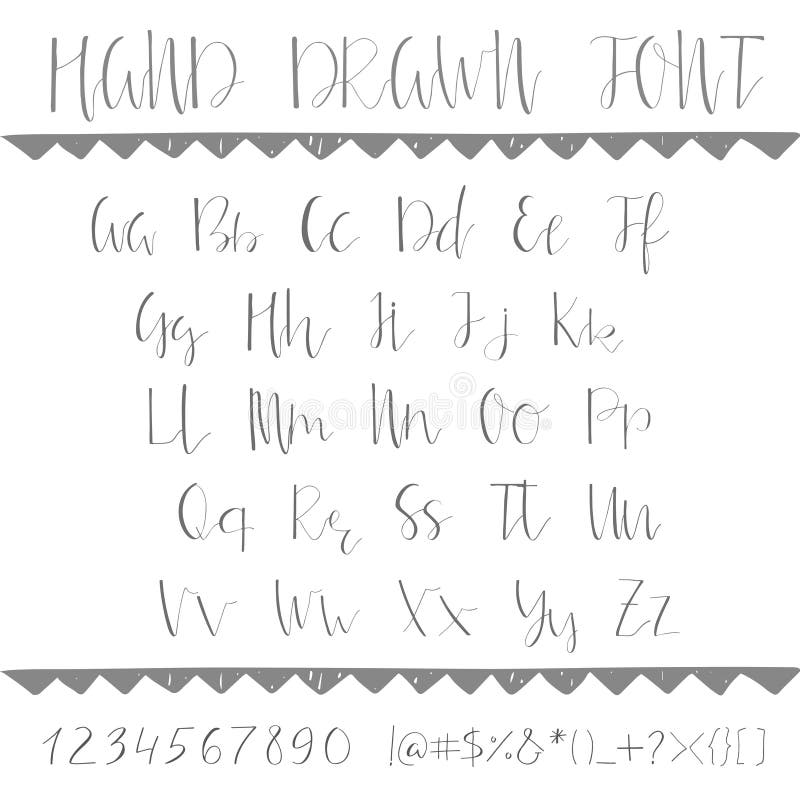 HAND DRAWN FONT
Aa Bb Cc Dd Ee Ff
Gg Hh Ii Jj Kk
Ll Mm Nn Oo Pp
Qq Rr Ss Tt Uu
Vv Ww Xx Yy Zz
1234567890 !@#$%&*()_+?><{}[]